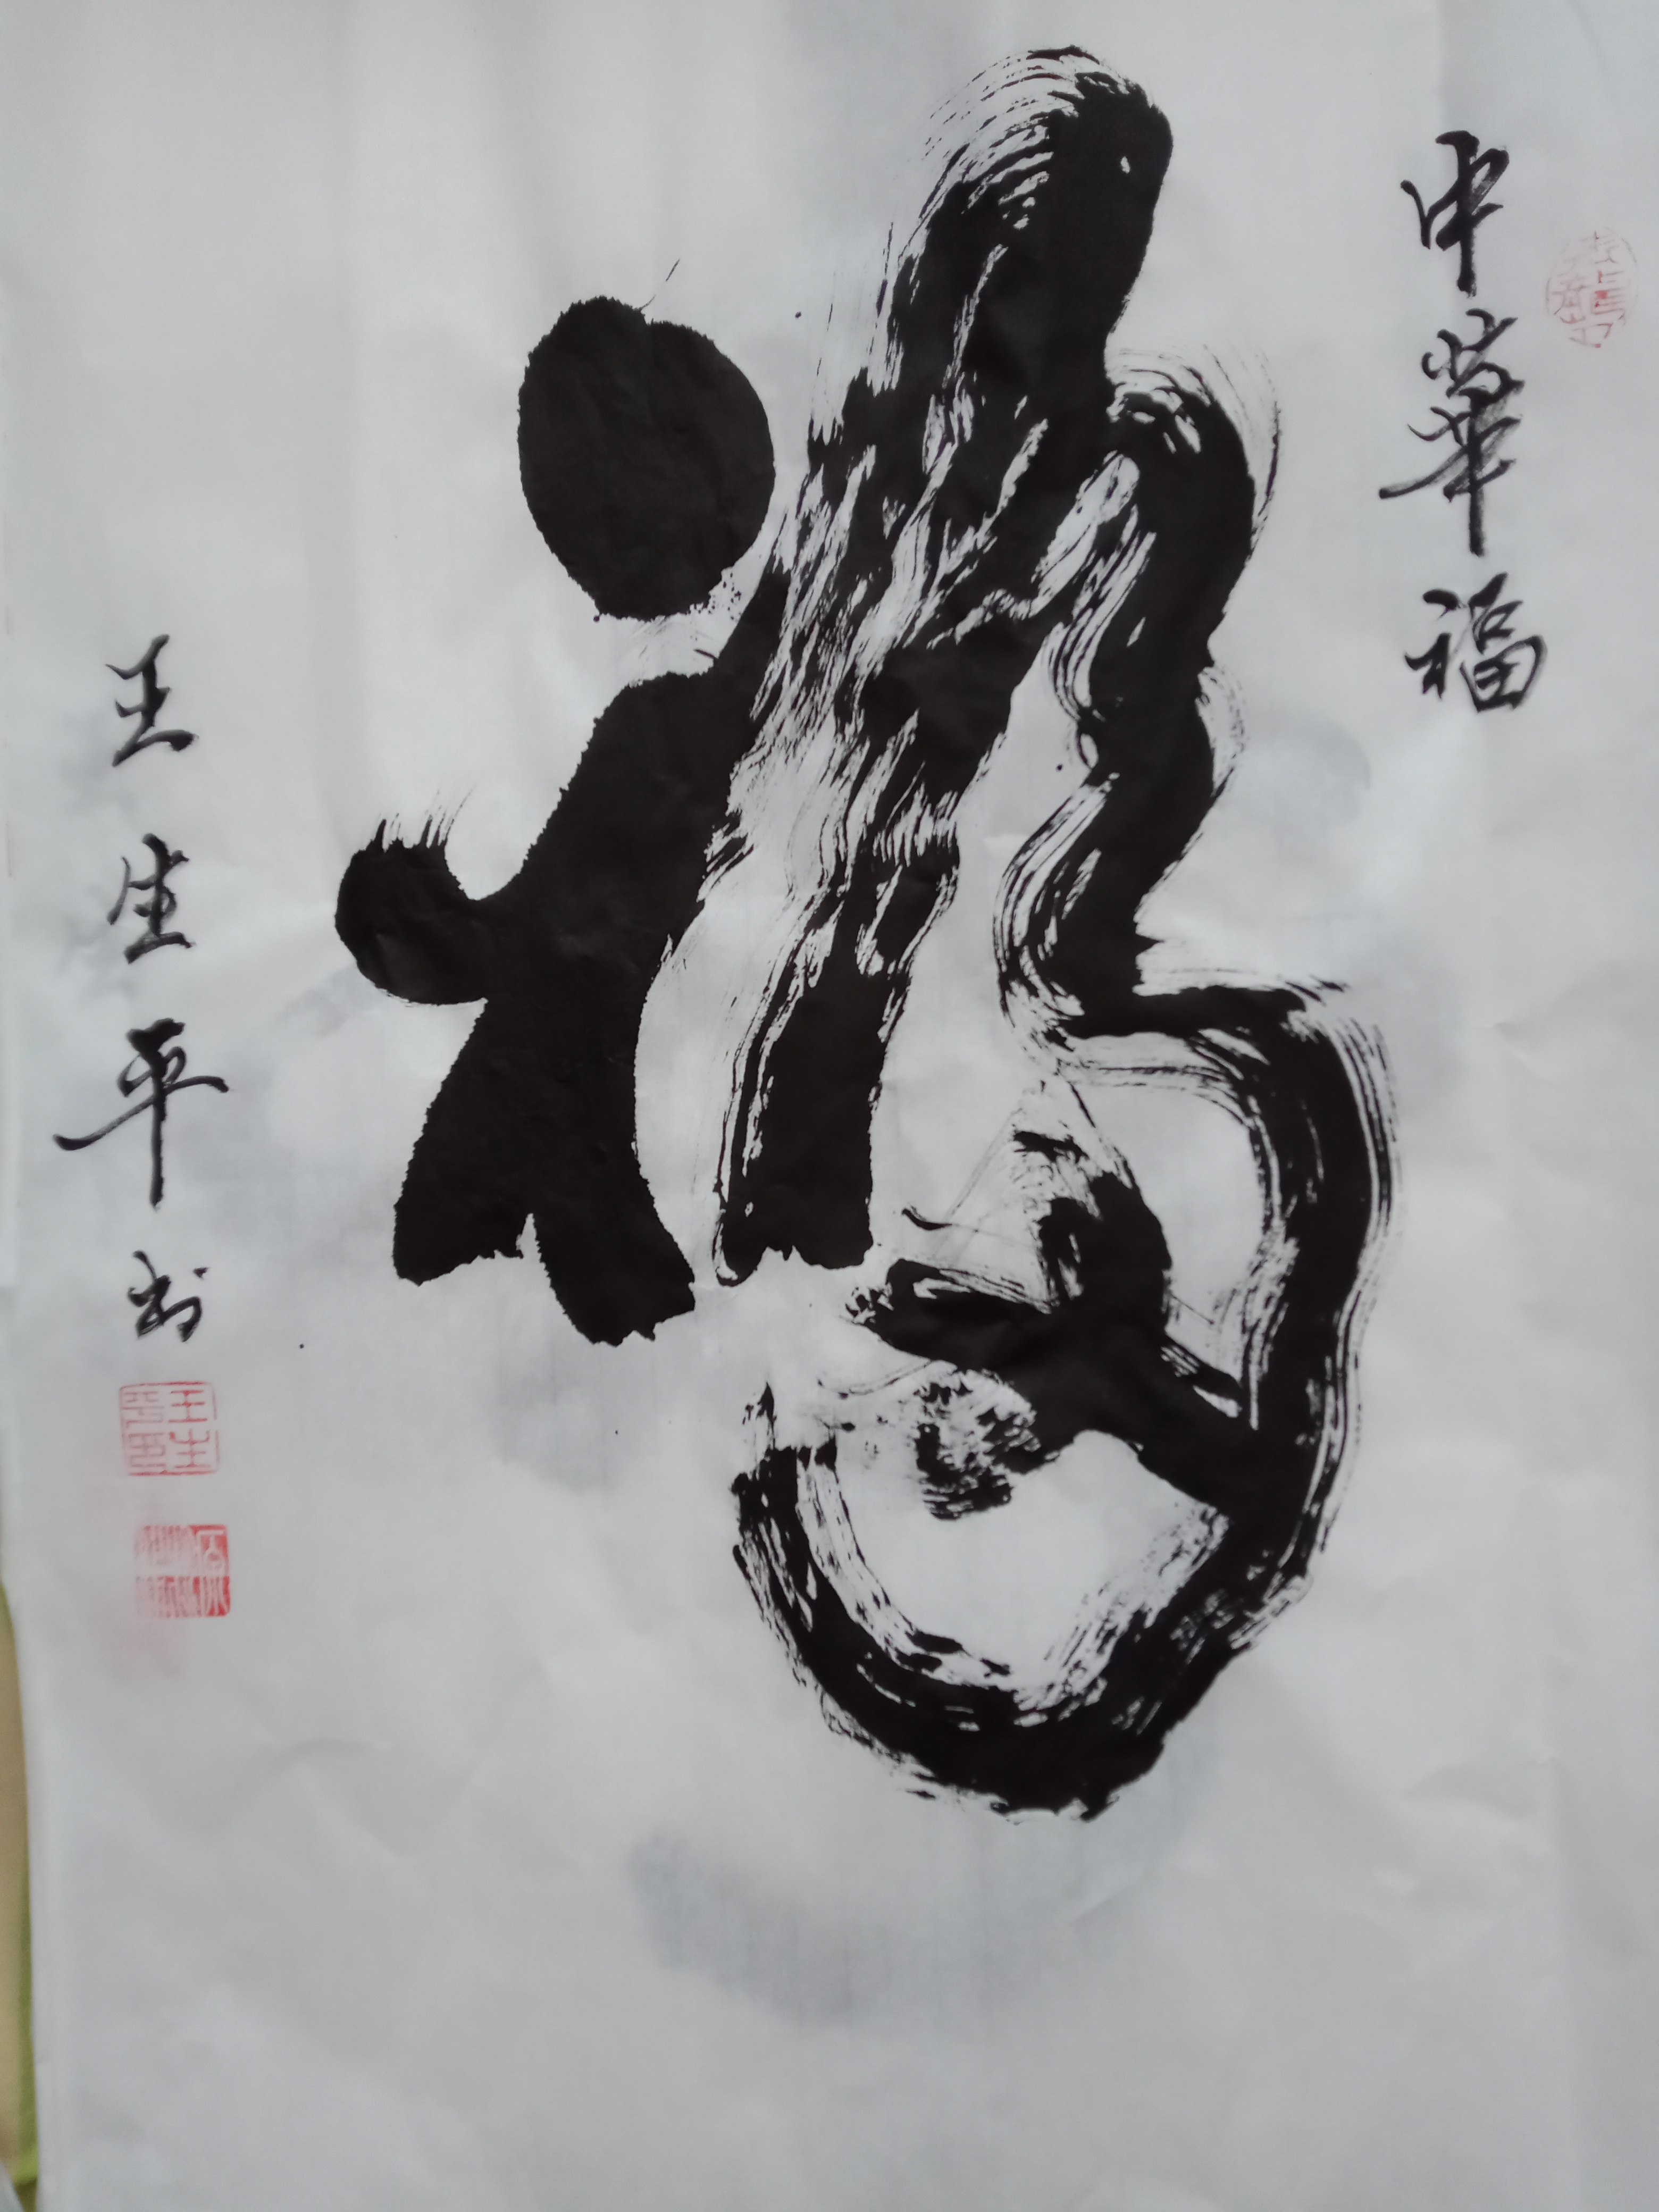 中華福
福
王生平书
王生平印